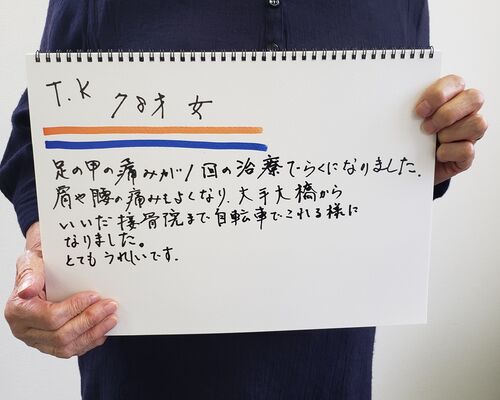 T.K
78才 女
足の甲の痛みが1回の治療でらくになりました.
肩や腰の痛みもよくなり、大手大橋から
いいだ接骨院まで自転車でこれる様に
なりました。
とてもうれしいです.